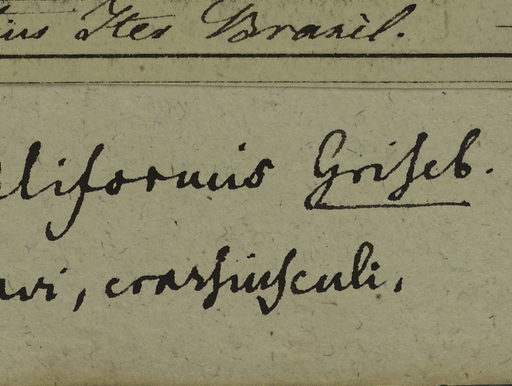 ius Iter Brasil.
aliformis Griseb.
avi, crassiusculi,